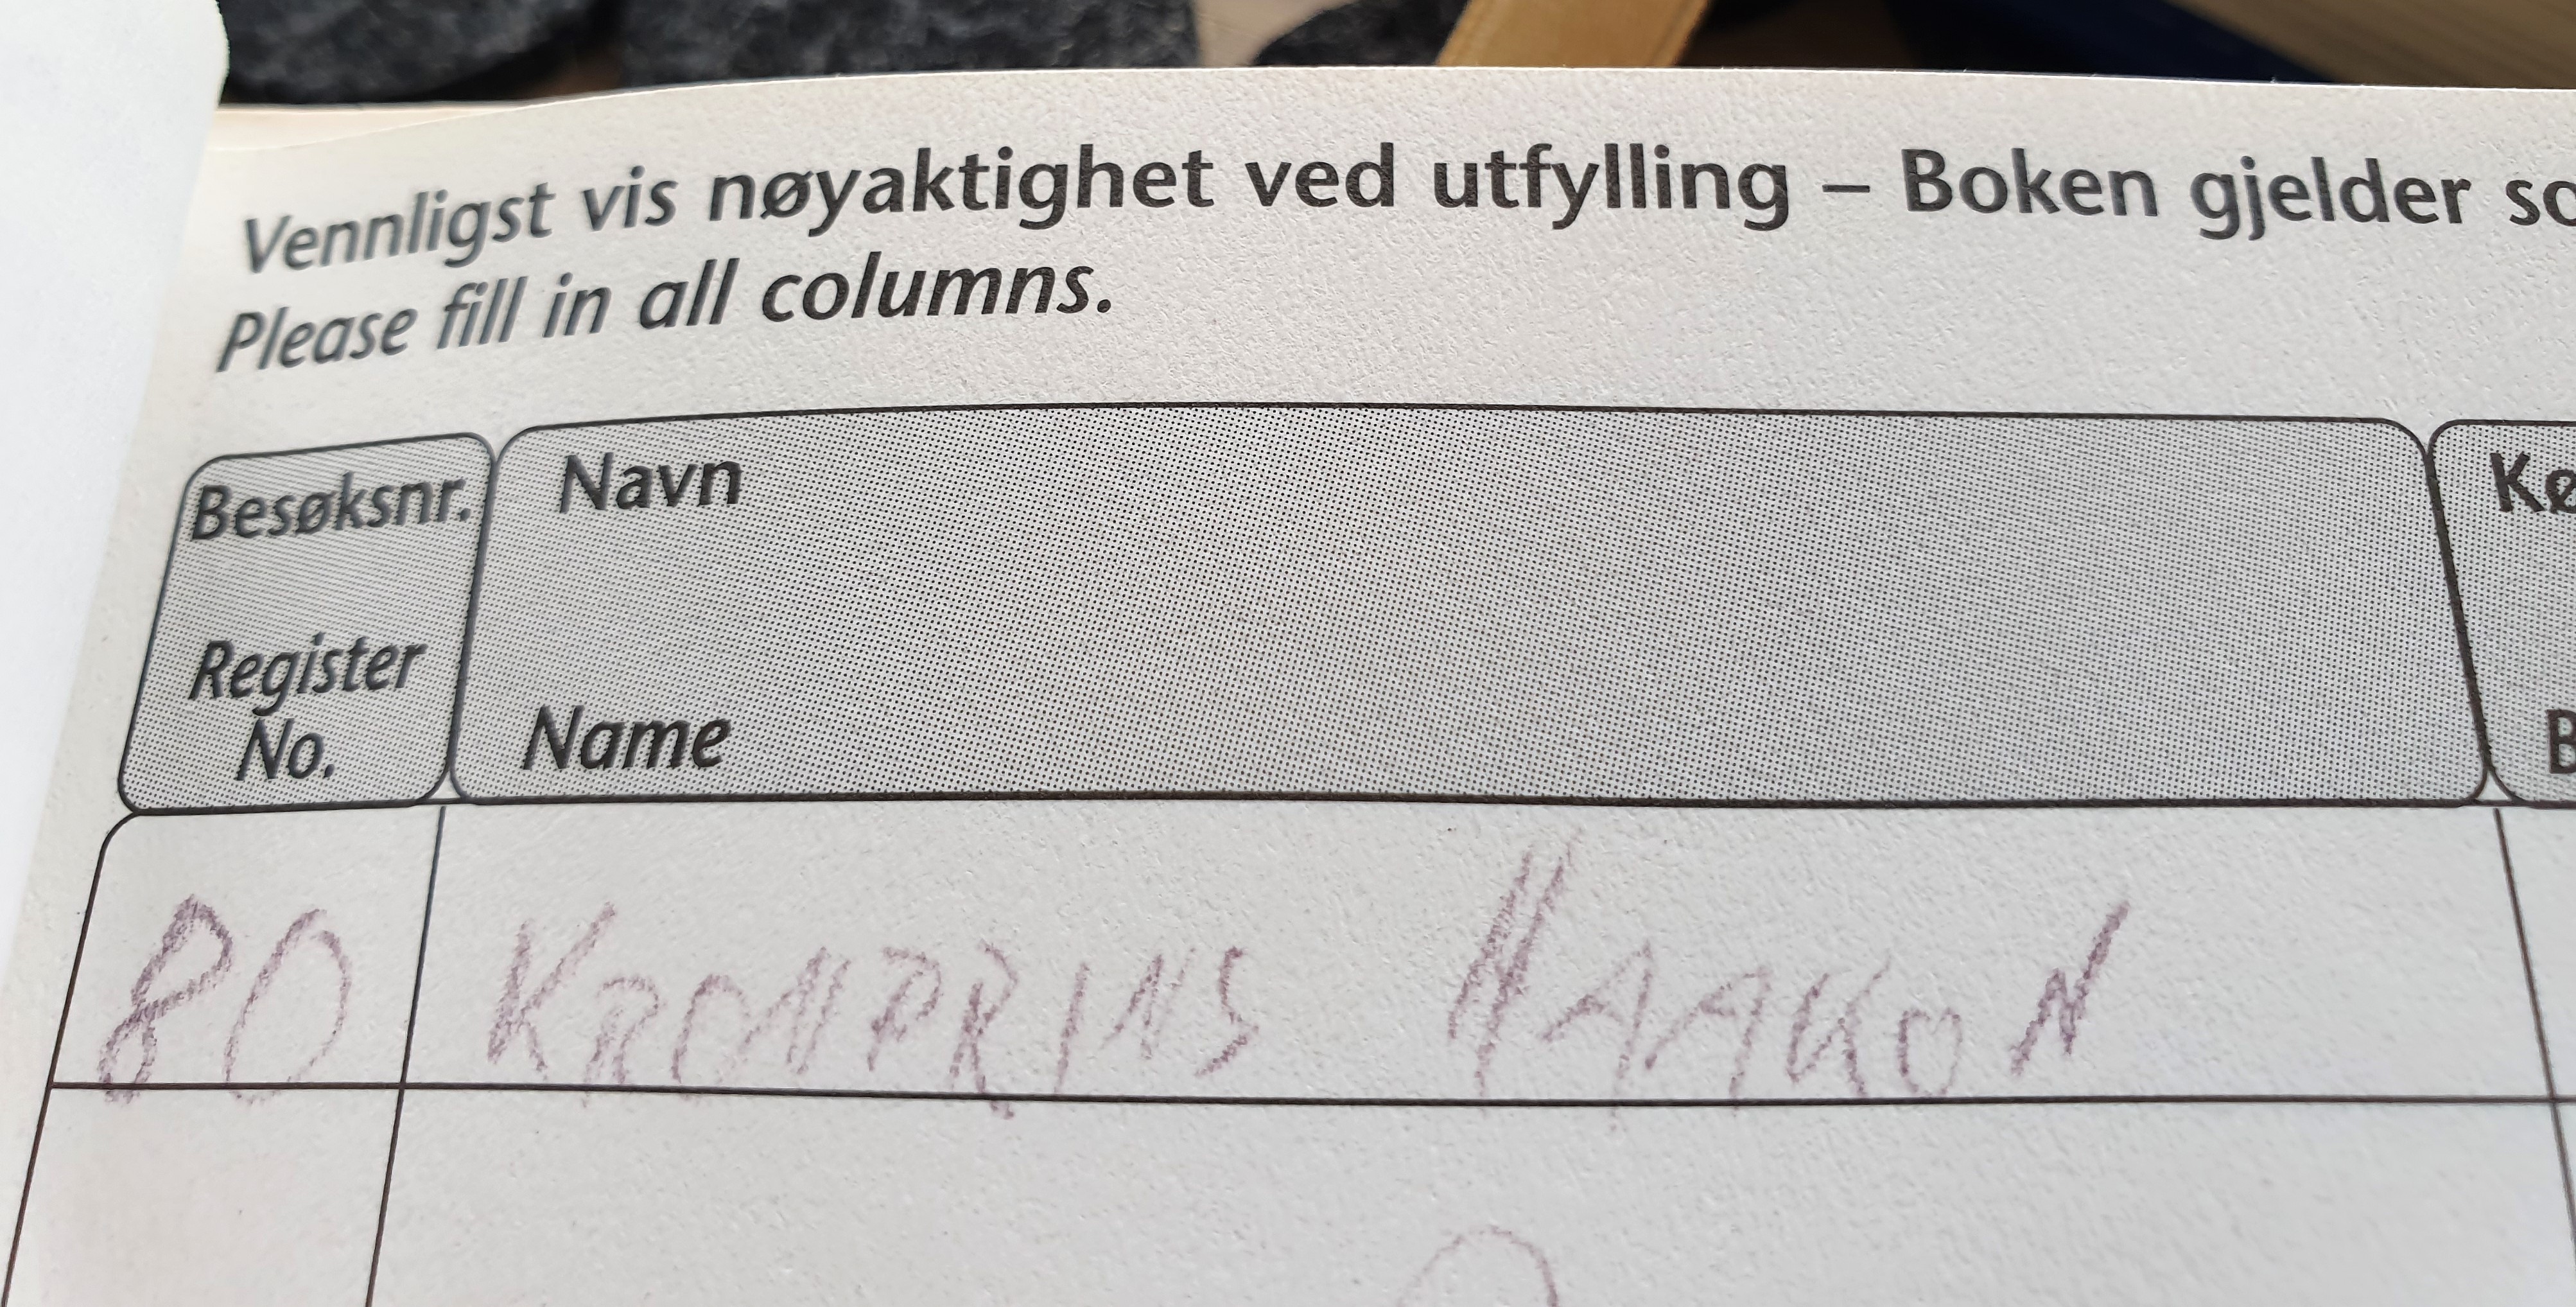 Vennligst vis nøyaktighet ved utfylling – Boken gjelder
Please fill in all columns.
Besøksnr.
Register
No.
Navn
Name
80 KRONPRINS HAAKON